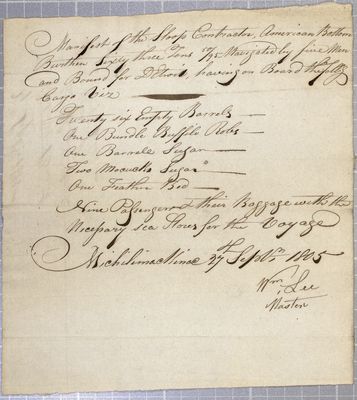 Manifest of the Sloop Contractor, American Bottom
Burthen Sixty three Tons 15/95 Navigated by five Men
and Bound for Detroit having on Board the follg
Cargo Viz
Twenty six Empty Barrels —
One Bundle Buffle Robs —
One Barrele Sugar —
Two Mocucks Sugar —
One Feather Bed —
Nine Passengers & their Baggage with the
Necessary sea Stores for the Voyage
Michilimackinac 27th Septbr 1805
Wm. Lee
Master